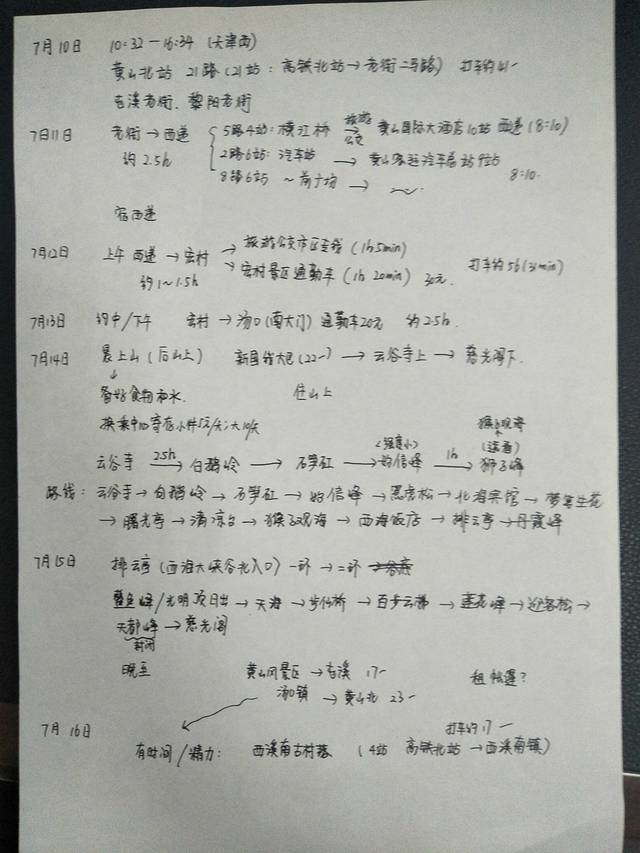 7月10日 10:32—16:34 (天津西)
黄山北站 21路(21站: 高铁北站→老街二马路) 打车约41-
屯溪老街、黎阳老街
7月11日 老街→西递 5路4站: 横江桥 旅游公交→ 黄山国际大酒店10站 西递(8:10)
约2.5h 2路6站: 汽车站 → 黄山客运汽车总站9站
8路6站 ~ → 8:10
宿西递
7月12日 上午 西递→宏村 → 旅游公交市区专线 (1h5min)
约1~1.5h → 宏村景区通勤车 (1h 20min) 30元. 打车约56(31min)
7月13日 约中/下午 宏村→汤口(南大门) 通勤车20元 约2.5h.
7月14日 晨上山(后山上) 新国线大巴(22-)→云谷寺上→慈光阁下.
↓
备好食物和水. 住山上
换乘中心寄存小件5元/天;大10/天 猴子观海
云谷寺 2.5h→ 白鹅岭 → 石笋矼 → <强度小> 始信峰 1h→ 狮子峰
路线: 云谷寺→白鹅岭→石笋矼→始信峰→黑虎松→北海宾馆→梦笔生花
→曙光亭→清凉台→猴子观海→西海饭店→排云亭→丹霞峰
7月15日 排云亭(西海大峡谷北入口)一环→二环
鳌鱼峰/光明顶日出→天海→步仙桥→百步云梯→莲花峰→迎客松→
天都峰→慈光阁
封闭
晚至 黄山风景区→屯溪 17- 租帐篷?
汤口镇→黄山北 23-
7月16日 打车约17-
有时间/精力: 西溪南古村落 (4站 高铁北站→西溪南镇)